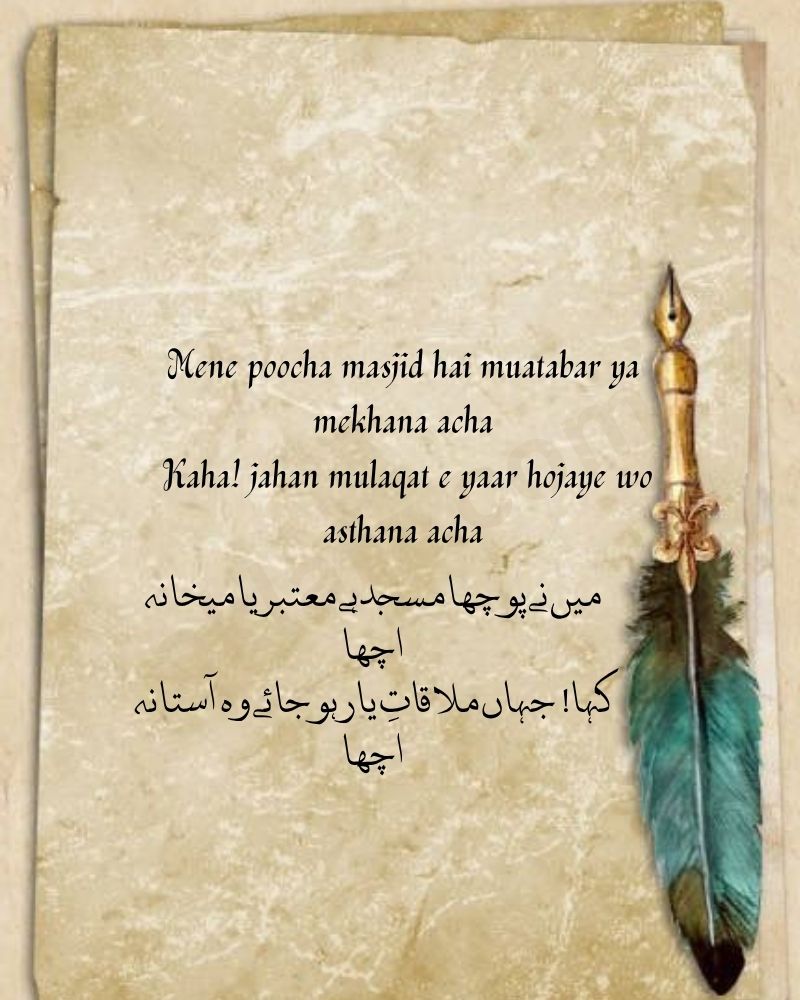 Mene poocha masjid hai muatabar ya
mekhana acha
Kaha! jahan mulaqat e yaar hojaye wo
asthana acha
میں نے پوچھا مسجد ہے معتبر یا میخانہ
اچھا
کہا! جہاں ملاقاتِ یار ہو جائے وہ آستانہ
اچھا